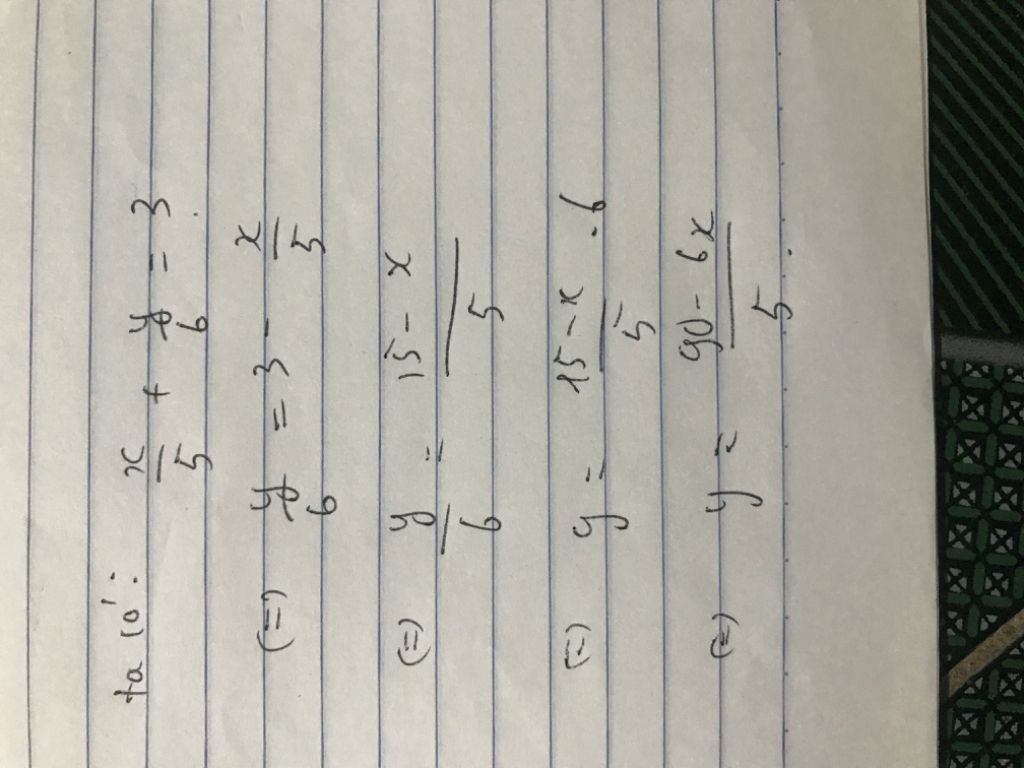 ta có: x/5 + y/6 = 3.
(=) y/6 = 3 - x/5
(=) y/6 = 15 - x/5
(=) y = 15 - x/5 . 6
(=) y = 90 - 6x/5.